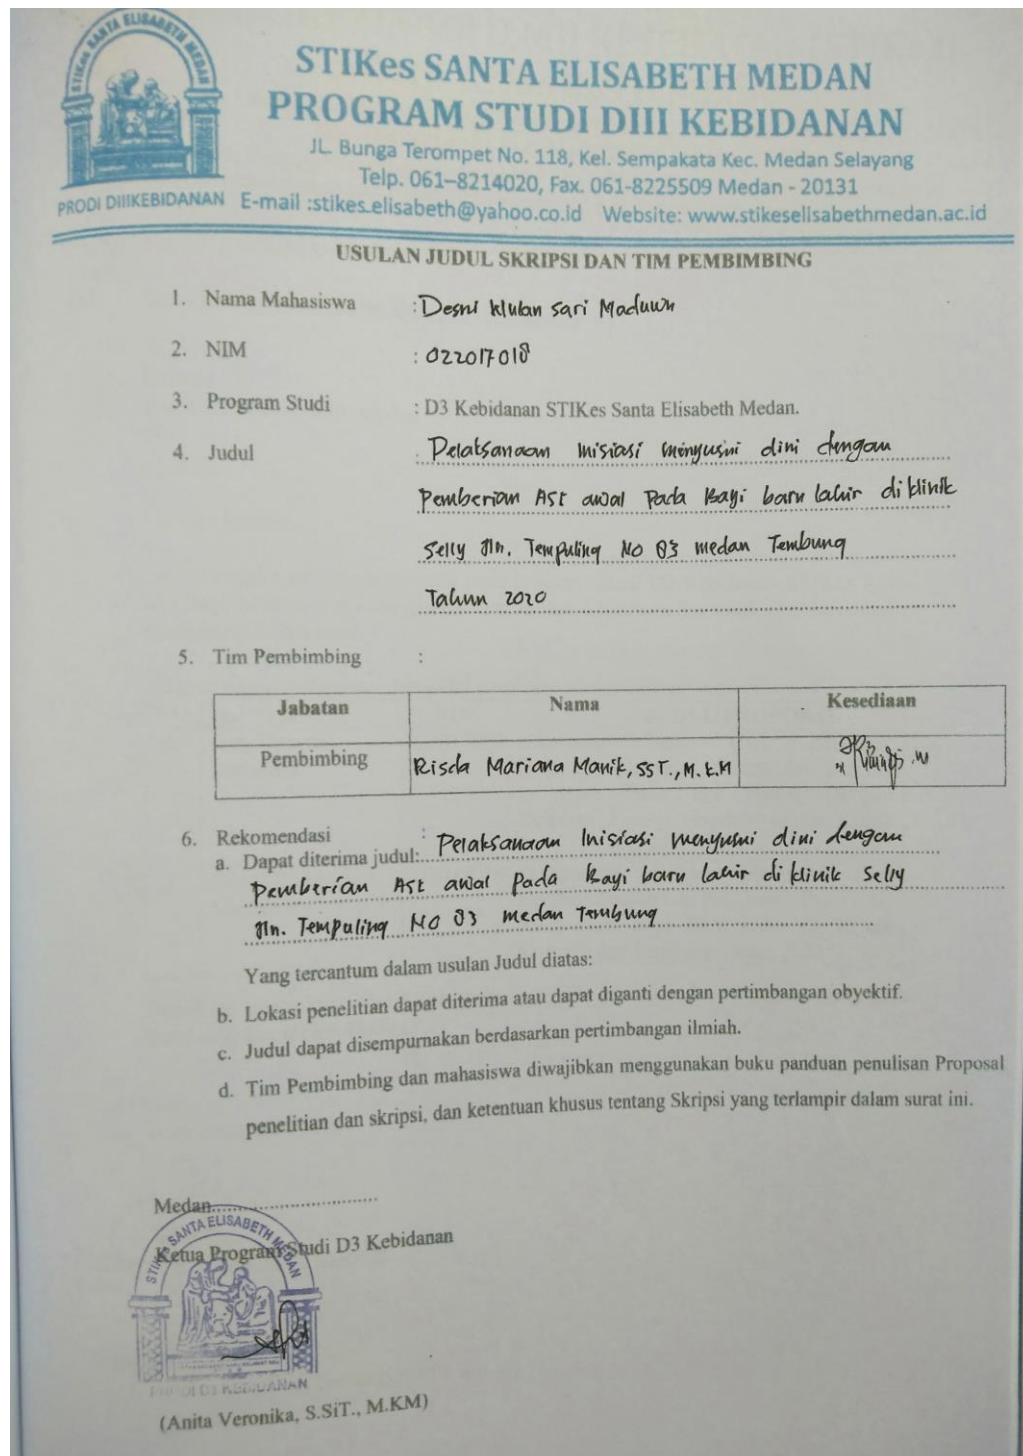 STIKes SANTA ELISABETH MEDAN
STIKes SANTA ELISABETH MEDAN
PROGRAM STUDI DIII KEBIDANAN
JL. Bunga Terompet No. 118, Kel. Sempakata Kec. Medan Selayang
Telp. 061–8214020, Fax. 061-8225509 Medan - 20131
PRODI DIIIKEBIDANAN
E-mail :stikes_elisabeth@yahoo.co.id Website: www.stikeselisabethmedan.ac.id
USULAN JUDUL SKRIPSI DAN TIM PEMBIMBING
1. Nama Mahasiswa : Desni Sari
2. NIM : 022017018
3. Program Studi : D3 Kebidanan STIKes Santa Elisabeth Medan.
4. Judul : Pelaksanaan inisiasi menyusui dini dengan
Pemberian ASI awal Pada Bayi baru lahir di klinik
Selly Jln. Tempuling No 83 medan Tembung
Tahun 2020
5. Tim Pembimbing :
Jabatan Nama Kesediaan
Pembimbing Risda Mariana Manik, SST., M.K.M
6. Rekomendasi :
a. Dapat diterima judul: Pelaksanaan Inisiasi menyusui dini dengan
Pemberian ASI awal Pada Bayi baru lahir di klinik Selly
Jln. Tempuling No 83 medan Tembung
Yang tercantum dalam usulan Judul diatas:
b. Lokasi penelitian dapat diterima atau dapat diganti dengan pertimbangan obyektif.
c. Judul dapat disempurnakan berdasarkan pertimbangan ilmiah.
d. Tim Pembimbing dan mahasiswa diwajibkan menggunakan buku panduan penulisan Proposal
penelitian dan skripsi, dan ketentuan khusus tentang Skripsi yang terlampir dalam surat ini.
Medan
Ketua Program Studi D3 Kebidanan
SANTA ELISABETH MEDAN
PRODI D3 KEBIDANAN
(Anita Veronika, S.SiT., M.KM)